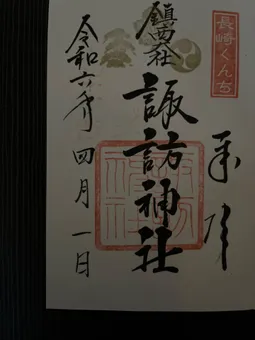 長崎くんち
奉拝
鎮西大社
諏訪神社
令和六年
四月一日